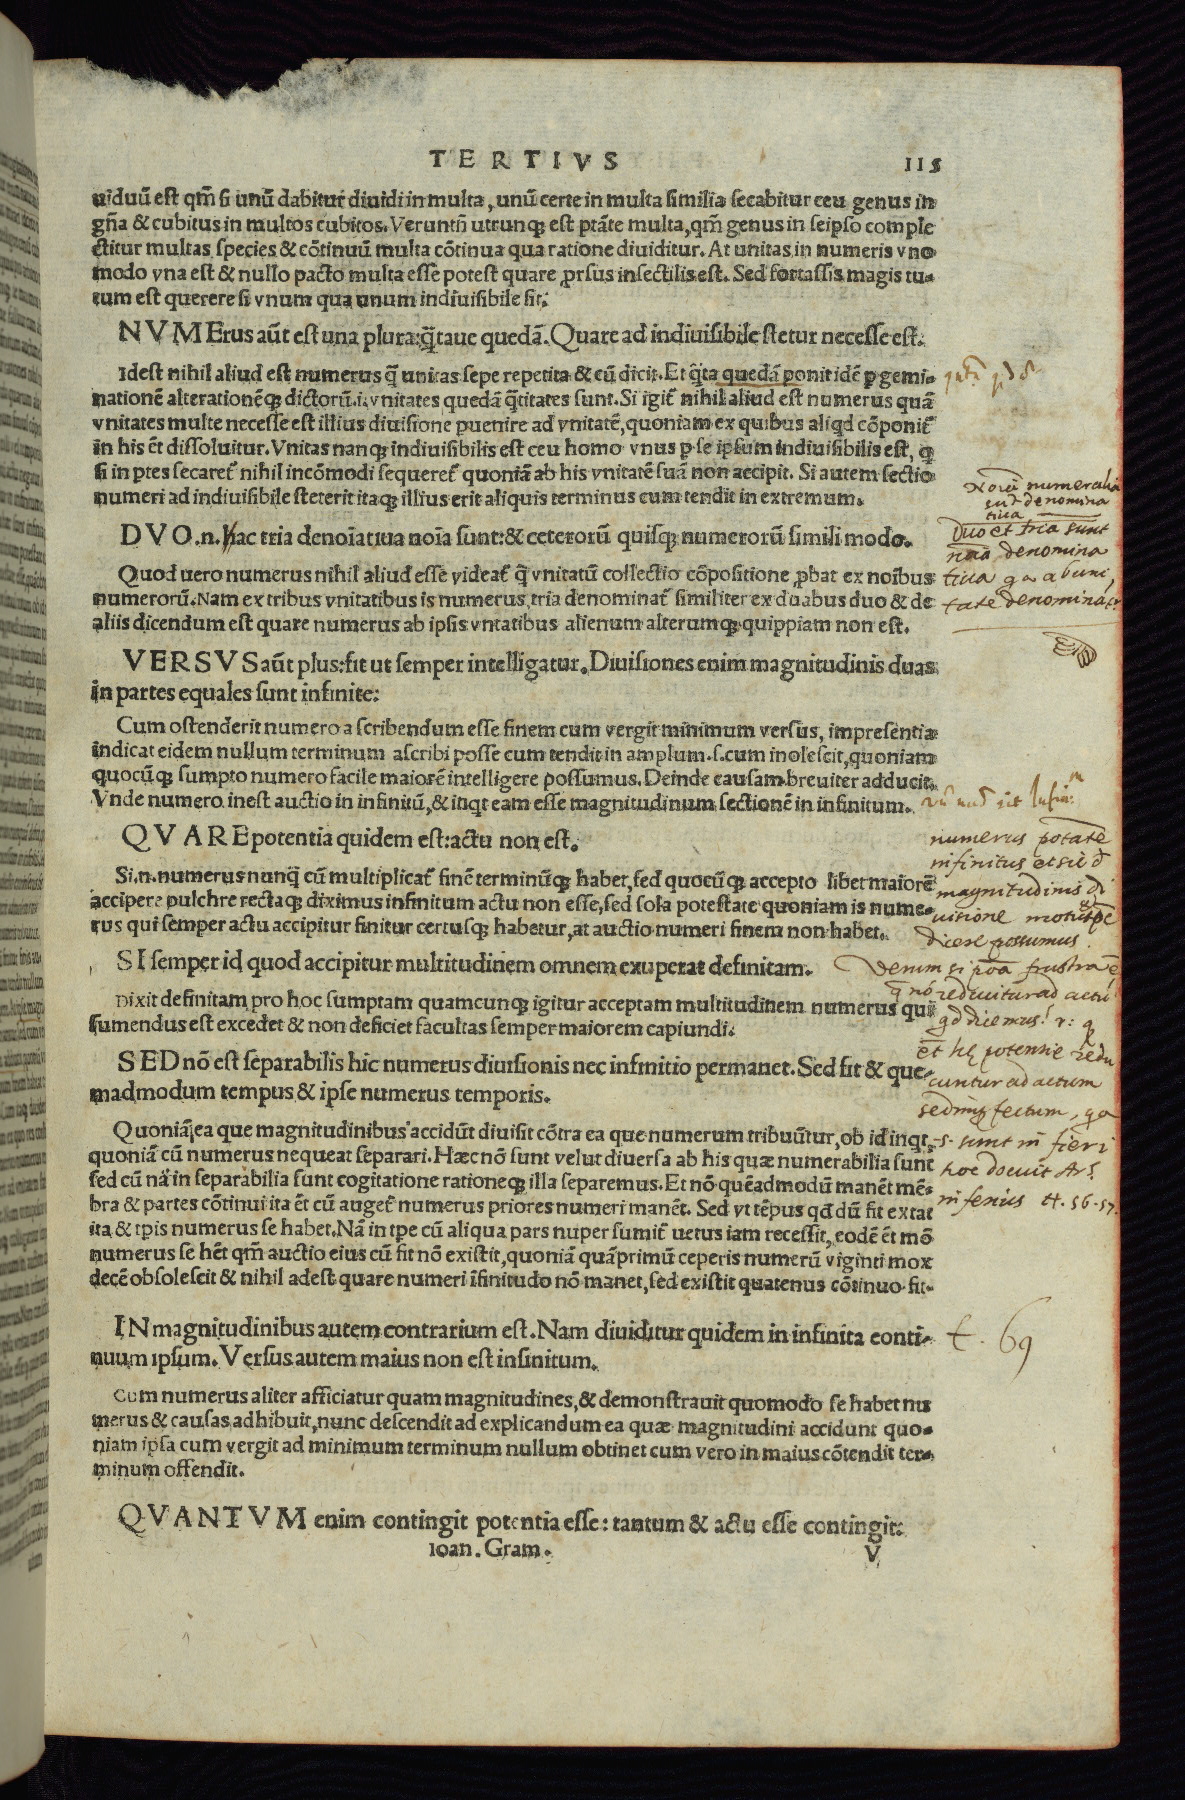 TERTIVS 115
uiduū est qm̄ si unū dabitur diuidi in multa, unū certe in multa similia secabitur ceu genus in
gn̄a & cubitus in multos cubitos. Veruntn̄ utrunq; est ptāte multa, qm̄ genus in seipso comple
ctitur multas species & cōtinuū multa cōtinua qua ratione diuiditur. At unitas in numeris vno
modo vna est & nullo pacto multa esse potest quare prsus insectilis est. Sed fortassis magis tu-
tum est querere si vnum qua unum indiuisibile sit.
NVMErus aūt est una plura: q̄taue quedā. Quare ad indiuisibile stetur necesse est.
Idest nihil aliud est numerus q̄ unitas sepe repetita & cū dicit. Et q̄ta quedā ponit idē p gemi-
nationē alterationēq; dictorū. i. vnitates quedā q̄titates sunt. Si igit̄ nihil aliud est numerus quā
vnitates multe necesse est illius diuisione puenire ad vnitatē, quoniam ex quibus aliqd cōponit̄
in his ēt dissoluitur. Vnitas nanq; indiuisibilis est ceu homo vnus p se ipsum indiuisibilis est, q;
si in ptes secaret̄ nihil incōmodi sequeret̄ quoniā ab his vnitatē suā non accipit. Si autem sectio
numeri ad indiuisibile steterit itaq; illius erit aliquis terminus cum tendit in extremum.
DVO. n. hac tria denoīatiua noīa sunt: & ceterorū quisq; numerorū simili modo.
Quod uero numerus nihil aliud esse videat̄ q̄ vnitatū collectio cōpositione pbat ex noībus
numerorū. Nam ex tribus vnitatibus is numerus tria denominat̄ similiter ex duabus duo & de
aliis dicendum est quare numerus ab ipsis vntatibus alienum alterumq; quippiam non est.
VERSVS aūt plus: fit ut semper intelligatur. Diuisiones enim magnitudinis duas
in partes equales sunt infinite:
Cum ostenderit numero a scribendum esse finem cum vergit minimum versus, impresentia
indicat eidem nullum terminum ascribi posse cum tendit in amplum. s. cum inolescit, quoniam
quocūq; sumpto numero facile maiorē intelligere possumus. Deinde causam breuiter adducit.
Vnde numero inest auctio in infinitū, & inqt eam esse magnitudinum sectionē in infinitum.
QVARE potentia quidem est: actu non est.
Si. n. numerus nunq̄ cū multiplicat̄ finē terminūq; habet, sed quocūq; accepto libet maiorē
accipere pulchre rectaq; diximus infinitum actu non esse, sed sola potestate quoniam is nume-
rus qui semper actu accipitur finitur certusq; habetur, at auctio numeri finem non habet.
SI semper id quod accipitur multitudinem omnem exuperat definitam.
Dixit definitam pro hoc sumptam quamcunq; igitur acceptam multitudinem numerus qui
sumendus est excedet & non deficiet facultas semper maiorem capiundi.
SED nō est separabilis hic numerus diuisionis nec infinitio permanet. Sed fit & que-
madmodum tempus & ipse numerus temporis.
Quoniā ea que magnitudinibus accidūt diuisit cōtra ea que numerum tribuūtur, ob id inqt.
quoniā cū numerus nequeat separari. Hæc nō sunt velut diuersa ab his quæ numerabilia sunt
sed cū nā in separabilia sunt cogitatione rationeq; illa separemus. Et nō quēadmodū manēt mē-
bra & partes cōtinui ita ēt cū auget̄ numerus priores numeri manēt. Sed vt tēpus qd dū fit extat
ita & tpis numerus se habet. Nā in tpe cū aliqua pars nuper sumit̄ uetus iam recessit, eodē ēt mō
numerus se hēt qm̄ auctio eius cū fit nō existit, quoniā quāprimū ceperis numerū viginti mox
decē obsolescit & nihil adest quare numeri īfinitudo nō manet, sed existit quatenus cōtinuo fit.
IN magnitudinibus autem contrarium est. Nam diuiditur quidem in infinita conti-
nuum ipsum. Versus autem maius non est infinitum.
Cum numerus aliter afficiatur quam magnitudines, & demonstrauit quomodo se habet nu
merus & causas adhibuit, nunc descendit ad explicandum ea quæ magnitudini accidunt quo-
niam ipsa cum vergit ad minimum terminum nullum obtinet cum vero in maius cōtendit ter-
minum offendit.
QVANTVM enim contingit potentia esse: tantum & actu esse contingit:
Ioan. Gram. V
numeralia
denomina
tiua
Duo et tria sunt
denomina
tiua abuni
tate denominat
numerus potāte
infinitus et
magnitudinis di
uisione
dicere possumus.
Verum si frustra ē
nō reducitur ad actū
qd dicemus!
et potentie redu
cuntur ad actum
sed fectum,
s. sunt in fieri
hoc docuit Ars.
inferius tt. 56. 57.
t. 69